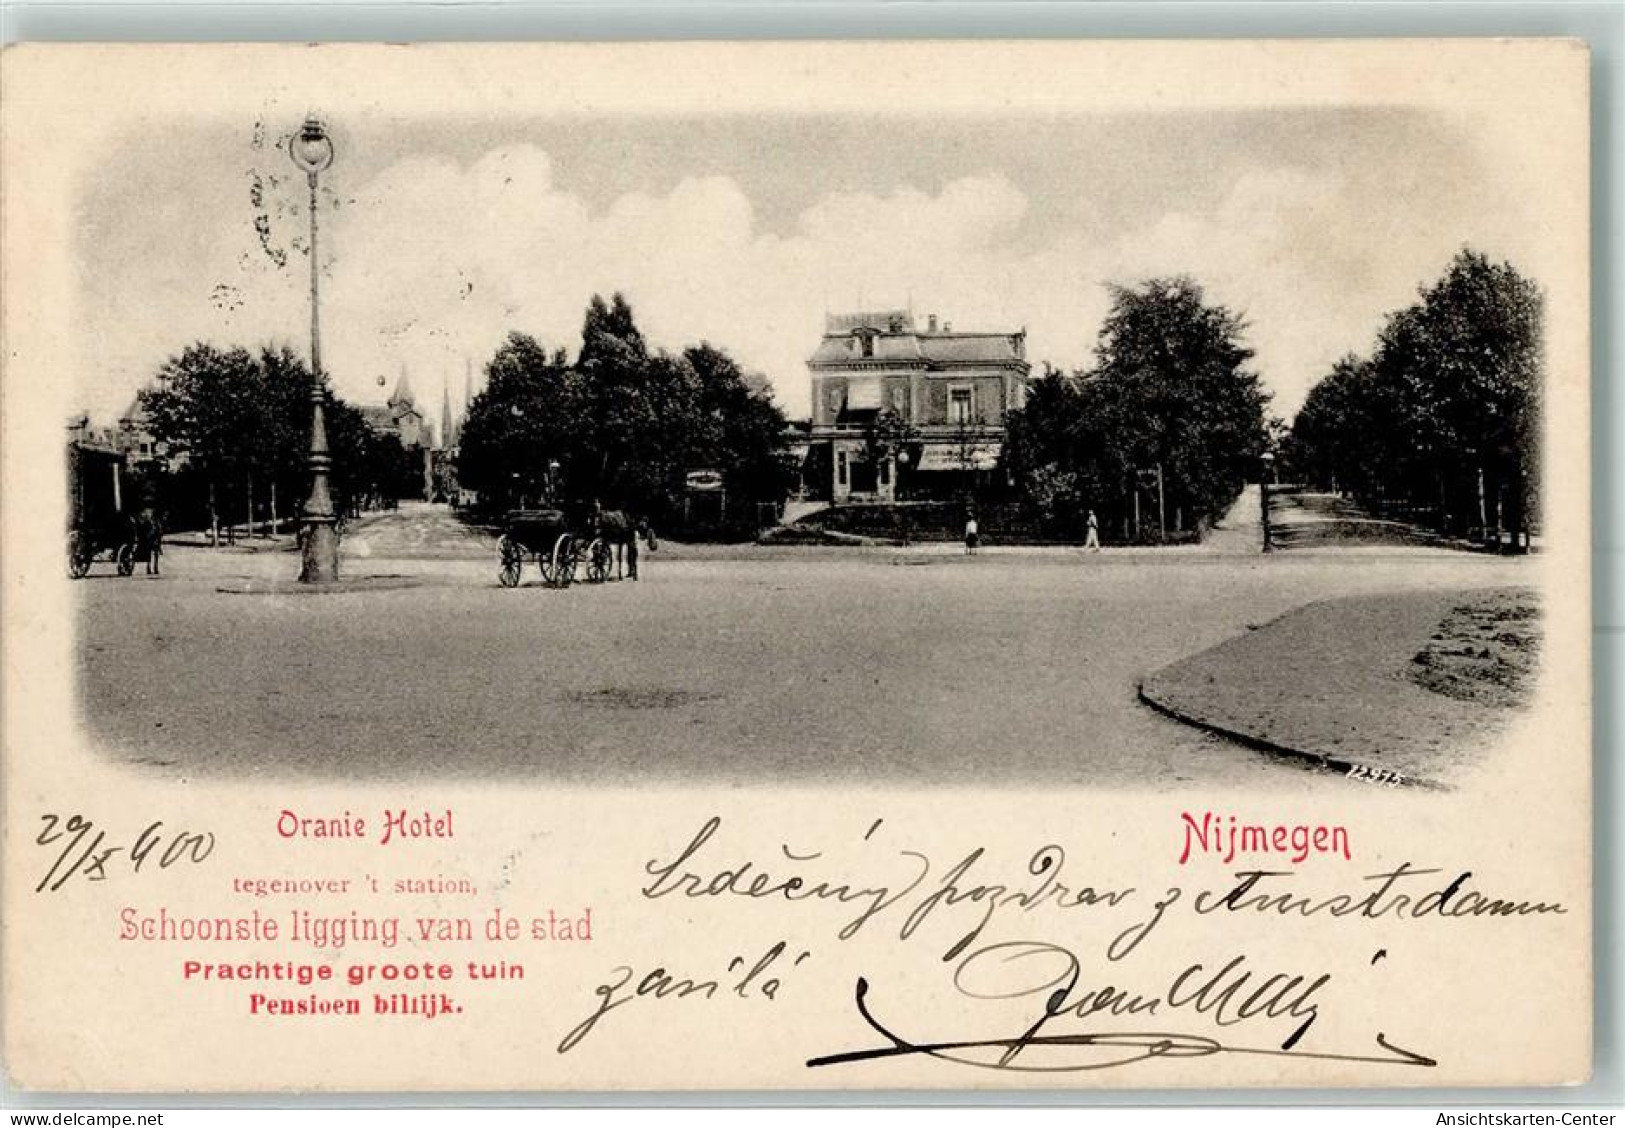 12975
29/X 900
Oranie Hotel
tegenover 't station,
Schoonste ligging van de stad
Prachtige groote tuin
Pensioen billijk.
Nijmegen
Srděčný pozdrav z Amstrdamu
zasílá
www.delcampe.net
Ansichtskarten-Center